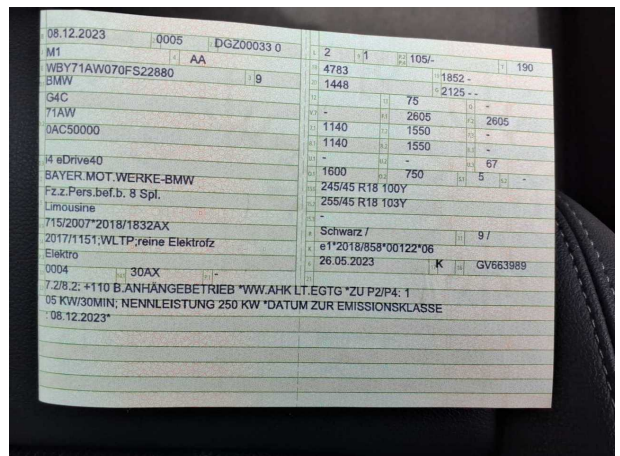 08.12.2023 0005 DGZ00033 0
M1 AA
WBY71AW070FS22880 9
BMW
G4C
71AW
0AC50000
i4 eDrive40
BAYER.MOT.WERKE-BMW
Fz.z.Pers.bef.b. 8 Spl.
Limousine
715/2007*2018/1832AX
2017/1151;WLTP;reine Elektrofz
Elektro
0004 30AX -
2 1 105/- 190
4783 1852 -
1448 2125 - -
75 -
- 2605 2605
1140 1550 -
1140 1550 -
- - 67
1600 750 5 -
245/45 R18 100Y
255/45 R18 103Y
-
Schwarz / 9 /
e1*2018/858*00122*06
26.05.2023 K GV663989
7.2/8.2: +110 B.ANHÄNGEBETRIEB *WW.AHK LT.EGTG *ZU P2/P4: 1
05 KW/30MIN; NENNLEISTUNG 250 KW *DATUM ZUR EMISSIONSKLASSE
: 08.12.2023*